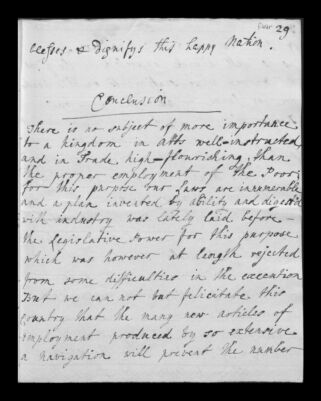 29
& Dignifys this happy Nation.
Conclusion
There is no subject of more importance
to a Kingdom in Arts well-instructed,
and in Trade high-flourishing, than
the proper employment of the Poor:
for this purpose our Laws are innumerable
and a plan invented by ability and digested
with industry was lately laid before
the Legislative Power for this purpose
which was however at length rejected
from some difficulties in the execution
But we can not but felicitate this
Country that the many new articles of
employment produced by so extensive
a navigation will prevent the number